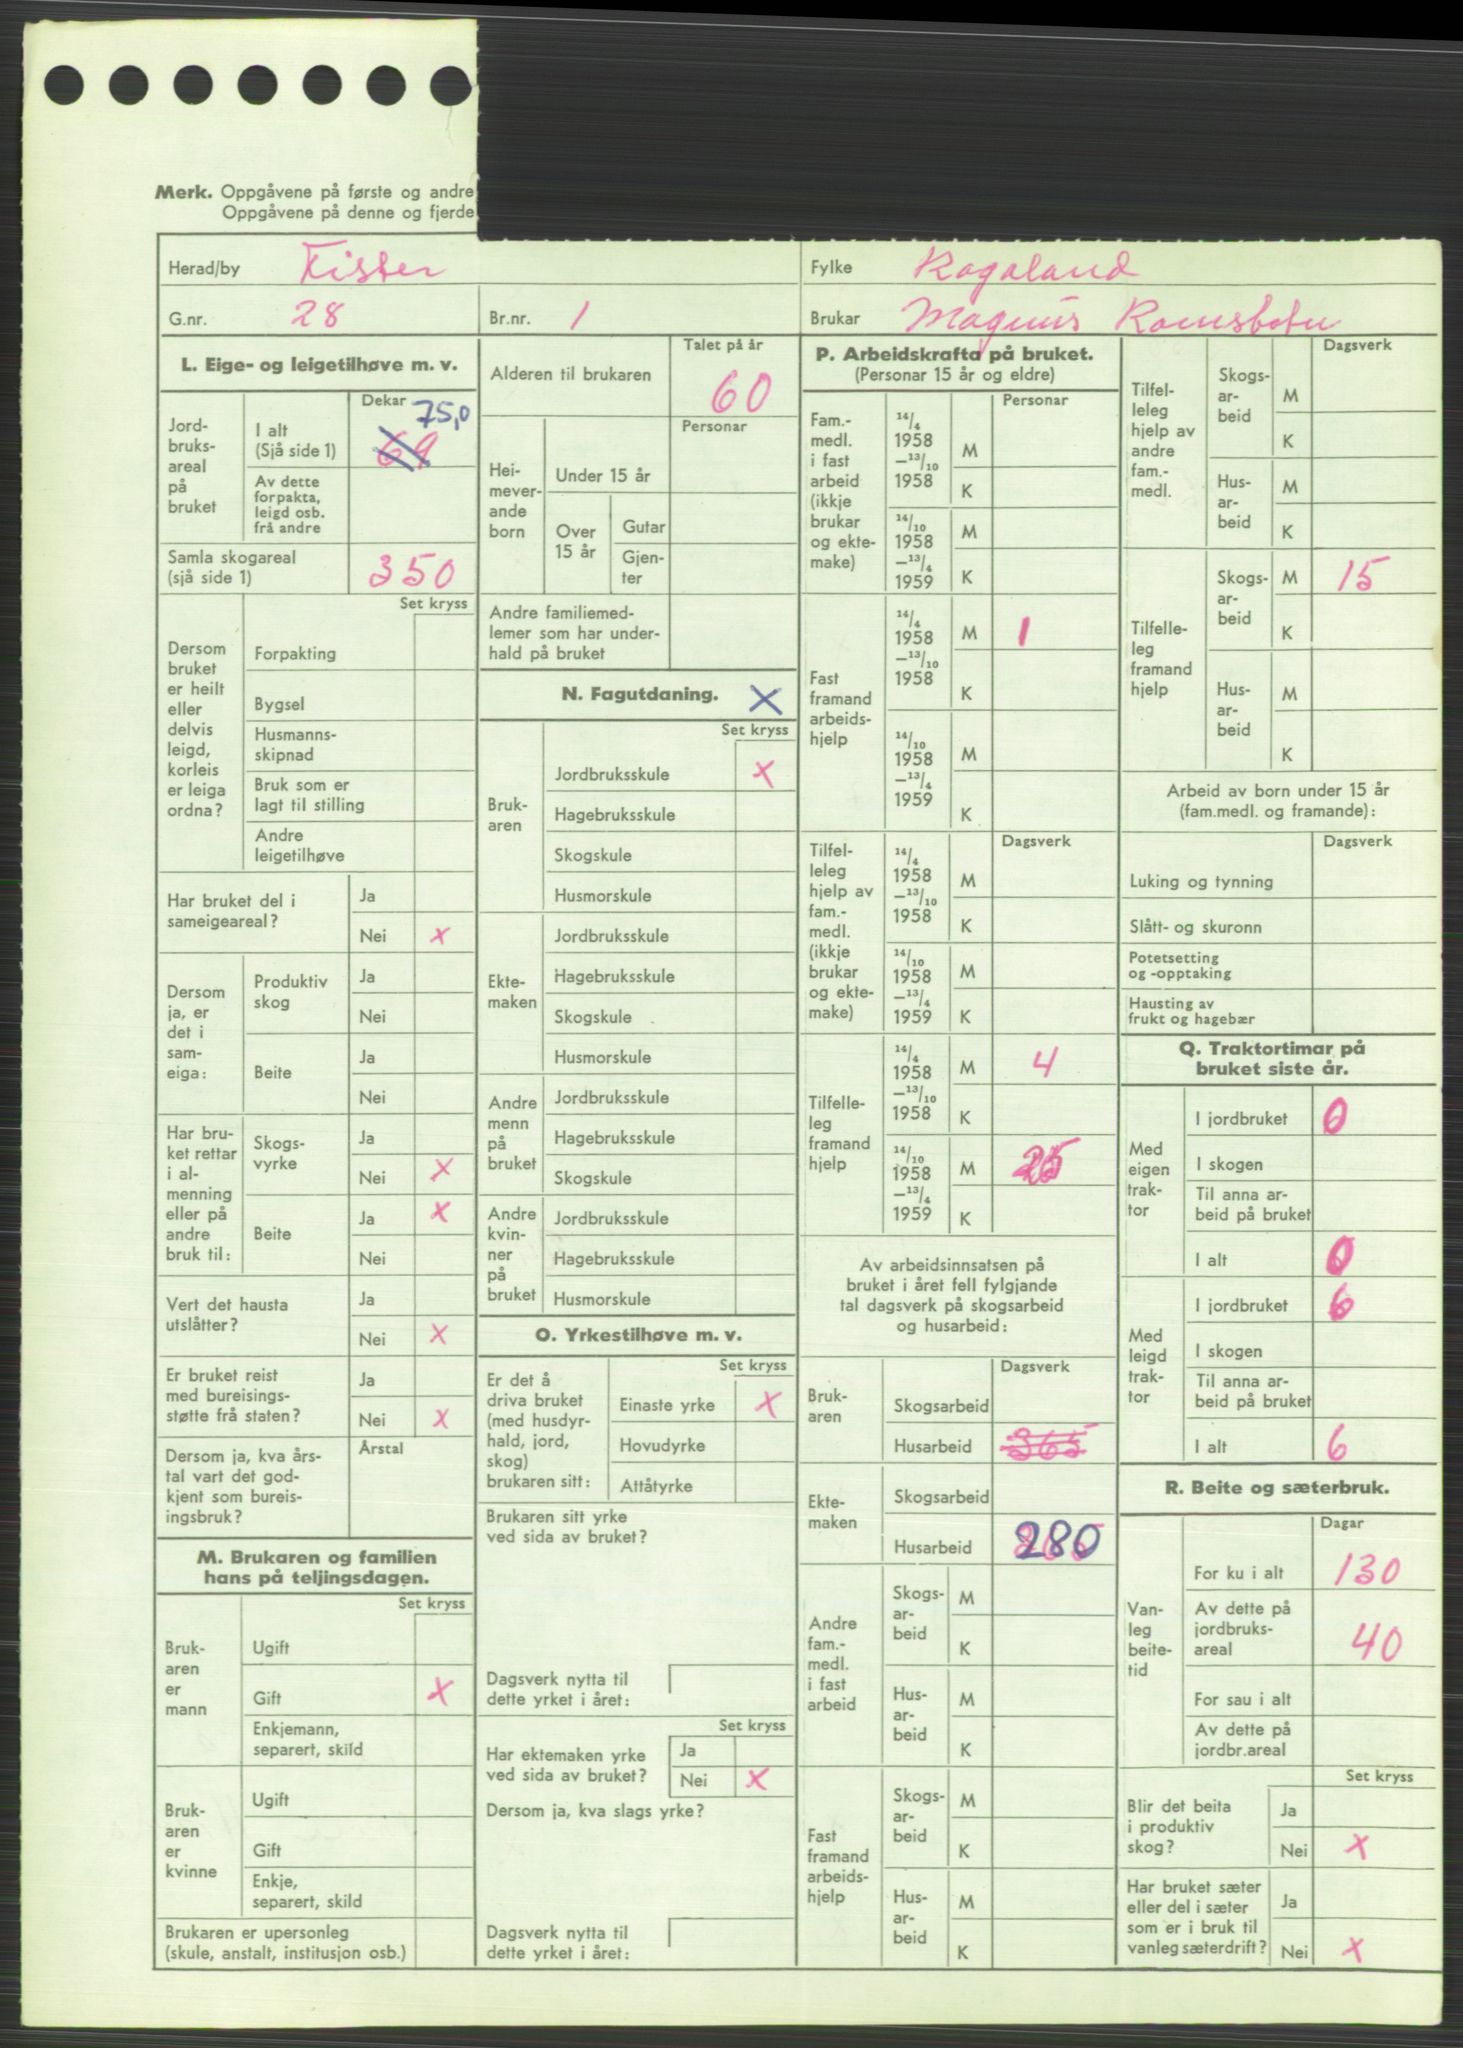 Merk. Oppgåvene på første og andre
Oppgåvene på denne og fjerde
Herad/by Fister
Fylke Rogaland
G.nr. 28
Br.nr. 1
Brukar Magnus Ramsbotn
L. Eige- og leigetilhøve m. v.
Jord-
bruks-
areal
på
bruket
Dekar
I alt
(Sjå side 1) 69 75,0
Av dette
forpakta,
leigd osb.
frå andre
Samla skogareal
(sjå side 1) 350
Set kryss
Dersom
bruket
er heilt
eller
delvis
leigd,
korleis
er leiga
ordna?
Forpakting
Bygsel
Husmanns-
skipnad
Bruk som er
lagt til stilling
Andre
leigetilhøve
Har bruket del i
sameigeareal?
Ja
Nei x
Dersom
ja, er
det i
sam-
eiga:
Produktiv
skog
Ja
Nei
Beite
Ja
Nei
Har bru-
ket rettar
i al-
menning
eller på
andre
bruk til:
Skogs-
vyrke
Ja
Nei x
Beite
Ja x
Nei
Vert det hausta
utslåtter?
Ja
Nei x
Er bruket reist
med bureisings-
støtte frå staten?
Ja
Nei x
Dersom ja, kva års-
tal vart det god-
kjent som bureis-
ingsbruk?
Årstal
M. Brukaren og familien
hans på teljingsdagen.
Set kryss
Bruk-
aren
er
mann
Ugift
Gift x
Enkjemann,
separert, skild
Bruk-
aren
er
kvinne
Ugift
Gift
Enkje,
separert, skild
Brukaren er upersonleg
(skule, anstalt, institusjon osb.)
Talet på år
Alderen til brukaren 60
Personar
Hei-
mever-
ande
born
Under 15 år
Over
15 år
Gutar
Gjen-
ter
Andre familiemed-
lemer som har under-
hald på bruket
N. Fagutdaning. x
Set kryss
Bruk-
aren
Jordbruksskule x
Hagebruksskule
Skogskule
Husmorskule
Ekte-
maken
Jordbruksskule
Hagebruksskule
Skogskule
Husmorskule
Andre
menn
på
bruket
Jordbruksskule
Hagebruksskule
Skogskule
Andre
kvin-
ner
på
bruket
Jordbruksskule
Hagebruksskule
Husmorskule
O. Yrkestilhøve m. v.
Set kryss
Er det å
driva bruket
(med husdyr-
hald, jord,
skog)
brukaren sitt:
Einaste yrke x
Hovudyrke
Attåtyrke
Brukaren sitt yrke
ved sida av bruket?
Dagsverk nytta til
dette yrket i året:
Set kryss
Har ektemaken yrke
ved sida av bruket?
Ja
Nei x
Dersom ja, kva slags yrke?
Dagsverk nytta til
dette yrket i året:
P. Arbeidskrafta på bruket.
(Personar 15 år og eldre)
Personar
Fam.-
medl.
i fast
arbeid
(ikkje
brukar
og ekte-
make)
14/4
1958
—13/10
1958
M
K
14/10
1958
—13/4
1959
M
K
Fast
framand
arbeids-
hjelp
14/4
1958
—13/10
1958
M 1
K
14/10
1958
—13/4
1959
M
K
Dagsverk
Tilfel-
leleg
hjelp av
fam.-
medl.
(ikkje
brukar
og ekte-
make)
14/4
1958
—13/10
1958
M
K
14/10
1958
—13/4
1959
M
K
Tilfelle-
leg
framand
hjelp
14/4
1958
—13/10
1958
M 4
K
14/10
1958
—13/4
1959
M 25
K
Av arbeidsinnsatsen på
bruket i året fell fylgjande
tal dagsverk på skogsarbeid
og husarbeid:
Dagsverk
Bruk-
aren
Skogsarbeid
Husarbeid 365
Ekte-
maken
Skogsarbeid
Husarbeid 280
Andre
fam.-
medl.
i fast
arbeid
Skogs-
ar-
beid
M
K
Hus-
ar-
beid
M
K
Fast
framand
arbeids-
hjelp
Skogs-
ar-
beid
M
K
Hus-
ar-
beid
M
K
Dagsverk
Tilfel-
leleg
hjelp av
andre
fam.-
medl.
Skogs-
ar-
beid
M
K
Hus-
ar-
beid
M
K
Tilfelle-
leg
framand
hjelp
Skogs-
ar-
beid
M 15
K
Hus-
ar-
beid
M
K
Arbeid av born under 15 år
(fam.medl. og framande):
Dagsverk
Luking og tynning
Slått- og skuronn
Potetsetting
og -opptaking
Hausting av
frukt og hagebær
Q. Traktortimar på
bruket siste år.
Med
eigen
trak-
tor
I jordbruket 0
I skogen
Til anna ar-
beid på bruket
I alt 0
Med
leigd
trak-
tor
I jordbruket 6
I skogen
Til anna ar-
beid på bruket
I alt 6
R. Beite og sæterbruk.
Dagar
Van-
leg
beite-
tid
For ku i alt 130
Av dette på
jordbruks-
areal 40
For sau i alt
Av dette på
jordbr.areal
Set kryss
Blir det beita
i produktiv
skog?
Ja
Nei x
Har bruket sæter
eller del i sæter
som er i bruk til
vanleg sæterdrift?
Ja
Nei x